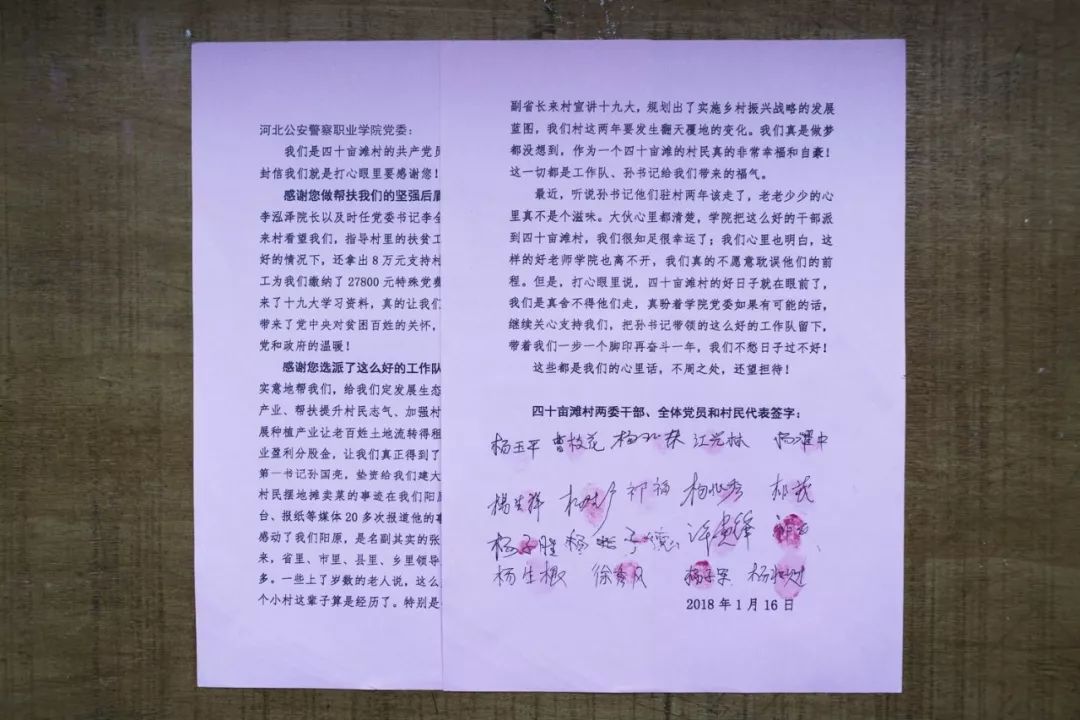 河北公安警察职业学院党委：
我们是四十亩滩村的共产党员
封信我们就是打心眼里要感谢您！
感谢您做帮扶我们的坚强后盾
李泓泽院长以及时任党委书记李全
来村看望我们，指导村里的扶贫工
好的情况下，还拿出8万元支持村
工为我们缴纳了27800元特殊党费
来了十九大学习资料，真的让我们
带来了党中央对贫困百姓的关怀，
党和政府的温暖！
感谢您选派了这么好的工作队
实意地帮我们，给我们定发展生态
产业、帮扶提升村民志气、加强村
展种植产业让老百姓土地流转得租
业盈利分股金，让我们真正得到了
第一书记孙国亮，垫资给我们建大
村民摆地摊卖菜的事迹在我们阳原
台、报纸等媒体20多次报道他的事
感动了我们阳原，是名副其实的张
来，省里、市里、县里、乡里领导
多。一些上了岁数的老人说，这么
个小村这辈子算是经历了。特别是
副省长来村宣讲十九大，规划出了实施乡村振兴战略的发展
蓝图，我们村这两年要发生翻天覆地的变化。我们真是做梦
都没想到，作为一个四十亩滩的村民真的非常幸福和自豪！
这一切都是工作队、孙书记给我们带来的福气。
最近，听说孙书记他们驻村两年该走了，老老少少的心
里真不是个滋味。大伙心里都清楚，学院把这么好的干部派
到四十亩滩村，我们很知足很幸运了；我们心里也明白，这
样的好老师学院也离不开，我们真的不愿意耽误他们的前
程。但是，打心眼里说，四十亩滩村的好日子就在眼前了，
我们是真舍不得他们走，真盼着学院党委如果有可能的话，
继续关心支持我们，把孙书记带领的这么好的工作队留下，
带着我们一步一个脚印再奋斗一年，我们不愁日子过不好！
这些都是我们的心里话，不周之处，还望担待！
四十亩滩村两委干部、全体党员和村民代表签字：
杨玉平 曹枝花 江兴林
杨生祥 祁福 杨兆秀
杨子胜
杨生椒 徐秀风
2018年1月16日